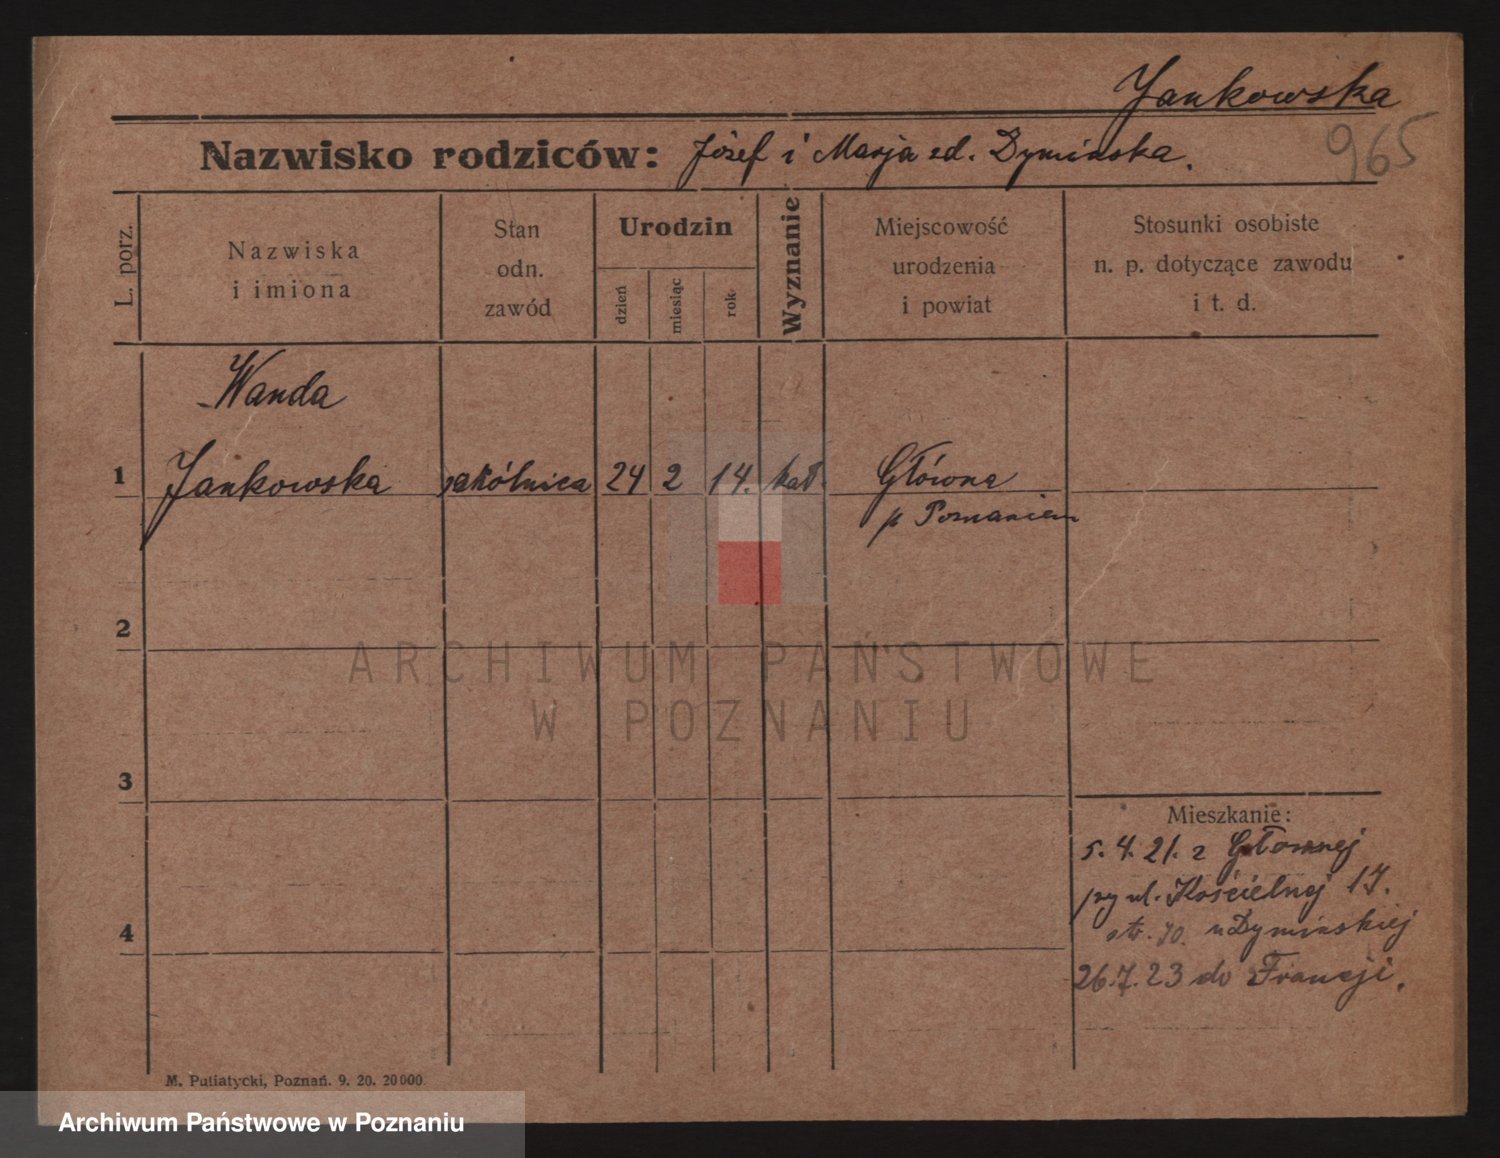 Jankowska
965
Nazwisko rodziców: Józef i Marja zd. Dymińska.
L. porz.
Nazwiska
i imiona
Stan
odn.
zawód
Urodzin
dzień
miesiąc
rok
Wyznanie
Miejscowość
urodzenia
i powiat
Stosunki osobiste
n. p. dotyczące zawodu
i t. d.
Wanda
1 Jankowska szkólnica 24 2 14. kat. Główna
p Poznaniem
2
ARCHIWUM PAŃSTWOWE
W POZNANIU
3
Mieszkanie:
5. 4. 21. z Głownej
przy ul. Kościelnej 17.
str. 70. u Dymińskiej
26.7.23 do Francji.
4
M. Putiatycki, Poznań. 9. 20. 20 000.
Archiwum Państwowe w Poznaniu